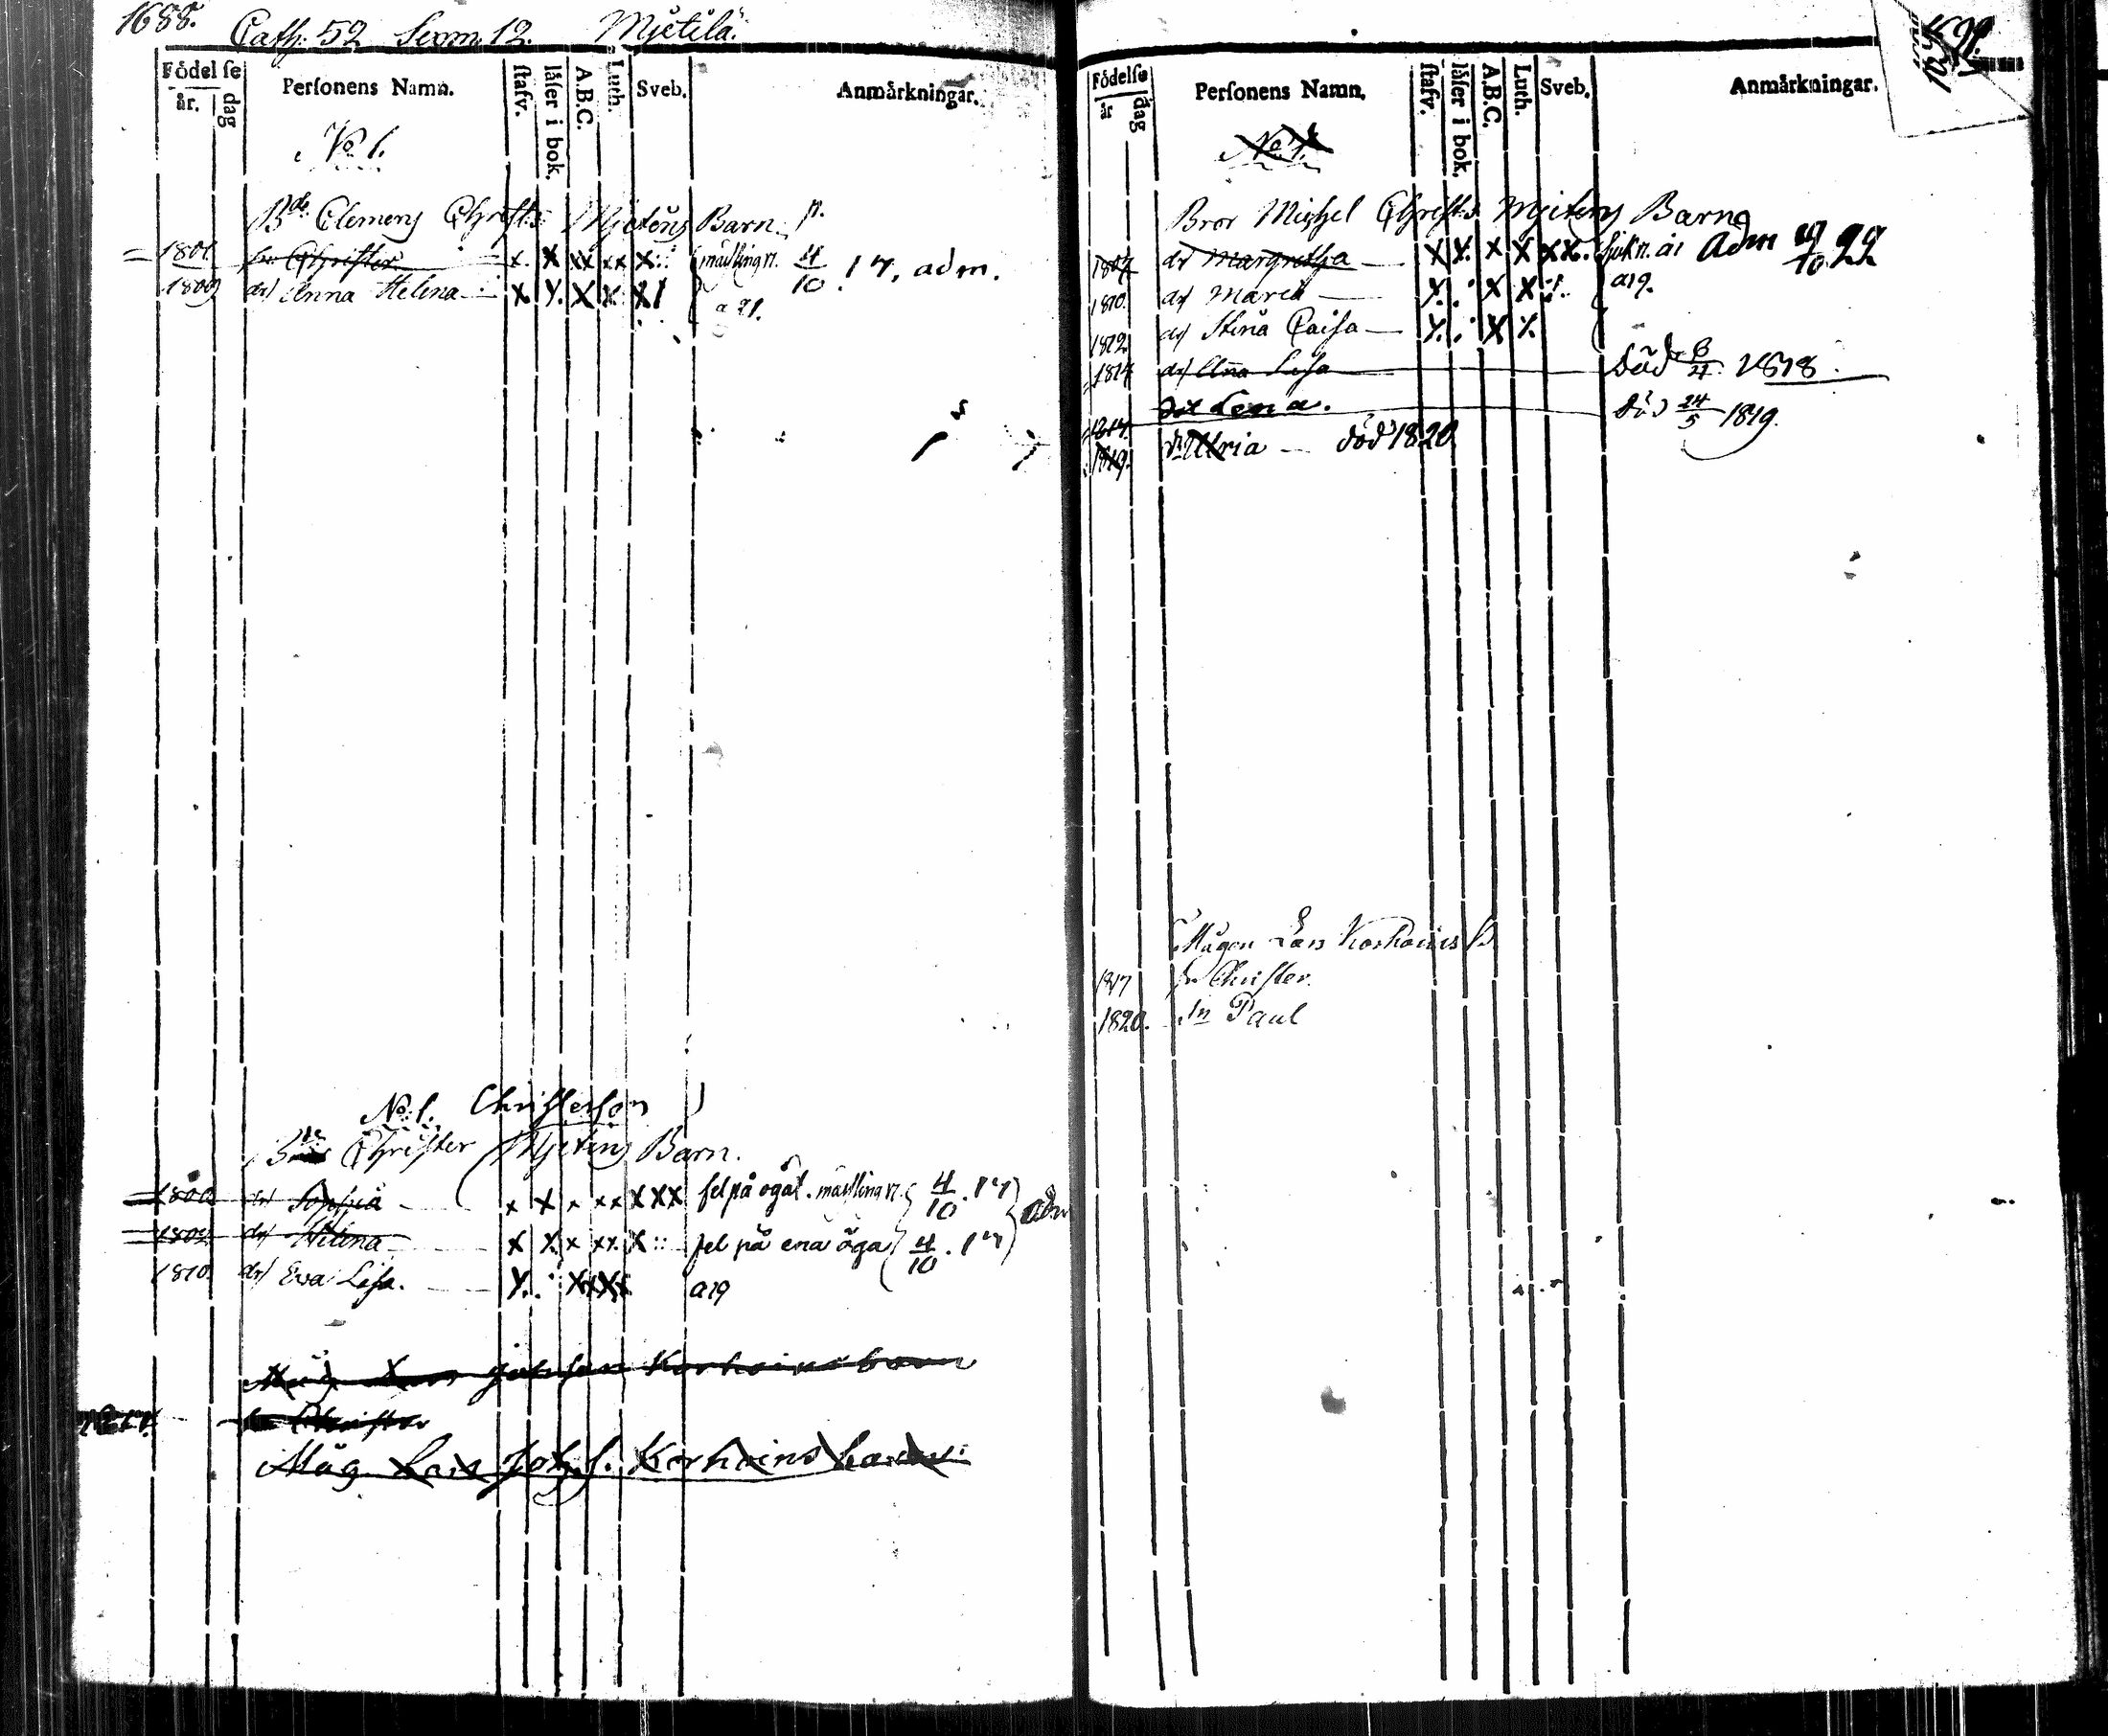 1688. Cath. 52 Sexm. 12. Mjetilä.
Födelse
år. dag Personens Namn. stafv. låser i bok. A.B.C. Luth. Sveb. Anmårkningar.
No 1.
Bde. Clemens Christs. Mjetens Barn.
1801. sn Christer x. x xx xx x:: mäsling n. 4/10. 17, adm.
1809 dr Anna Helena x y. x x. x1 a 21.
No 1. Christerson
Christer Mjetens Barn.
1800 dr Sophia x x x xx xxx fel på ögat. mäsling n. 4/10. 17 adm
1802 dr Helena x x. x xx. x:: fel på ena öga 4/10. 17
1810. dr Eva Lisa. a19
Måg Lars Johnson Korhoins barn
sn Christer
Måg Lars Joh. s. Korhoins barn
Födelse
år dag Personens Namn. stafv. låser i bok. A.B.C. Luth. Sveb. Anmårkningar.
No. 1.
Bror Michel Christ.s. Mjetens Barn
1807 dr Margretha x x. x x xx. Adm 22
1810. dr Maria a19.
1812 dr Stina Caisa
1814 dr Anna Lisa död 1818.
1817. dr Lena. död 24/5 1819.
1819. dr Maria död 1820
Mågen Lars Korhoins B.
1817 sn Christer.
1820. sn Paul